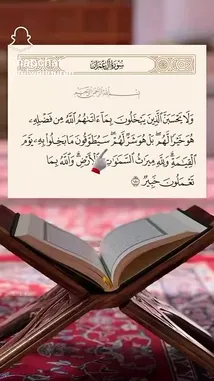 سُورَةُ آلِ عِمْرَان
بِسْمِ اللَّهِ الرَّحْمَٰنِ الرَّحِيمِ
وَلَا يَحْسَبَنَّ الَّذِينَ يَبْخَلُونَ بِمَا ءَاتَىٰهُمُ اللَّهُ مِن فَضْلِهِ
هُوَ خَيْرًا لَّهُم بَلْ هُوَ شَرٌّ لَّهُمْ سَيُطَوَّقُونَ مَا بَخِلُوا بِهِ يَوْمَ
الْقِيَٰمَةِ وَلِلَّهِ مِيرَٰثُ السَّمَٰوَٰتِ وَالْأَرْضِ وَاللَّهُ بِمَا
تَعْمَلُونَ خَبِيرٌ